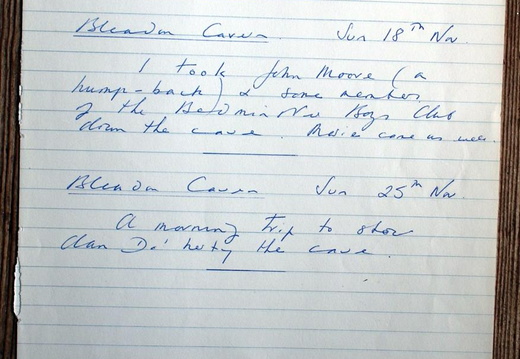 Bleadon Cavern. Sun 18th Nov.
I took John Moore (a
hump-back) & some members
of the Boys Club
down the cave. came as well.
Bleadon Cavern Sun 25th Nov.
A morning trip to show
Alan Do'herty the cave.